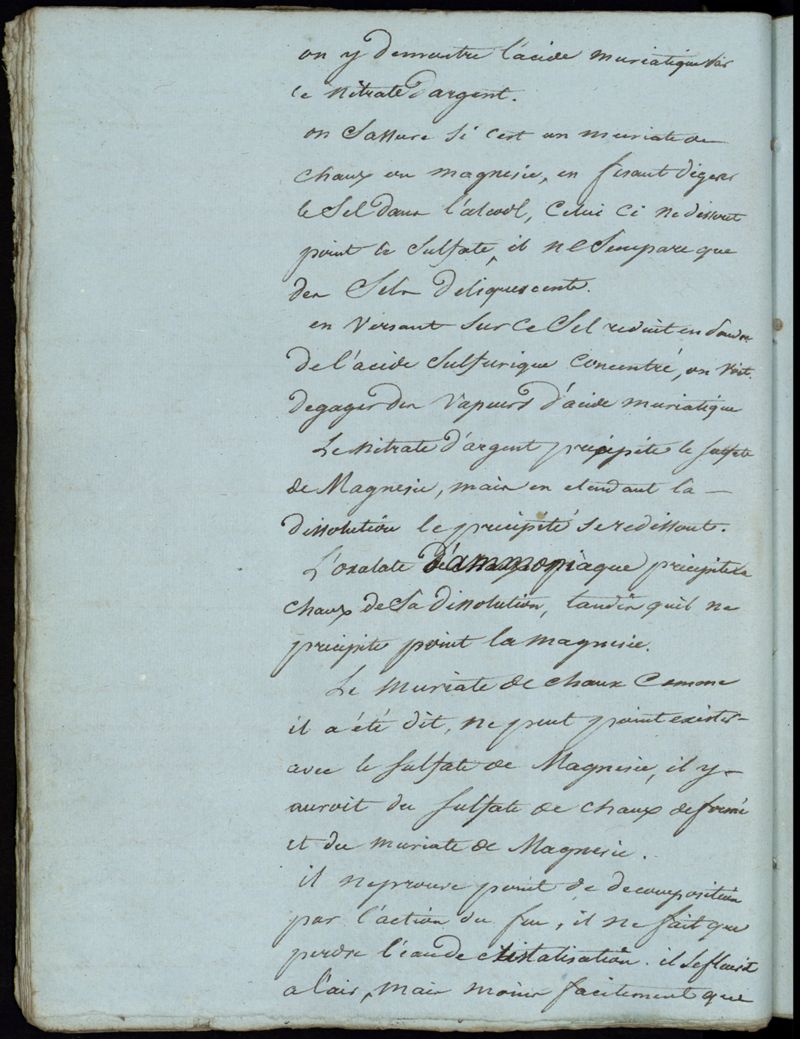 on y demontre l'acide muriatique par
le nitrate d'argent.
on Sassure Si c'est un muriate de
chaux ou magnesie, en fesant digerer
le Sel dans l'alcool, Celui Ci ne dissout
point le Sulfate, il ne Sempare que
des Sels deliquescents.
en Versant Sur Ce Sel reduit en poudre
De l'acide Sulfurique Concentré, on voit
Degager des Vapeurs d'acide muriatique
Le nitrate d'argent precipite le sulfate
de Magnesie, mais en etendant la
dissolution le precipité se redissout.
L'oxalate d'ammoniaque precipite la
chaux de Sa dissolution, tandis quil ne
precipite point la magnesie.
Le muriate de chaux Comme
il a été dit, ne peut point exister
avec le Sulfate de Magnesie, il y
auroit du Sulfate de chaux de formé
et du muriate de Magnesie.
il neprouve point de decomposition
par l'action du feu, il ne fait que
perdre l'eau de cristalisation. il Sefleurit
a l'air, mais moins facilement que